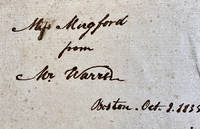 Miss Mugford
from
Mr. Warren
Boston. Oct. 9. 183